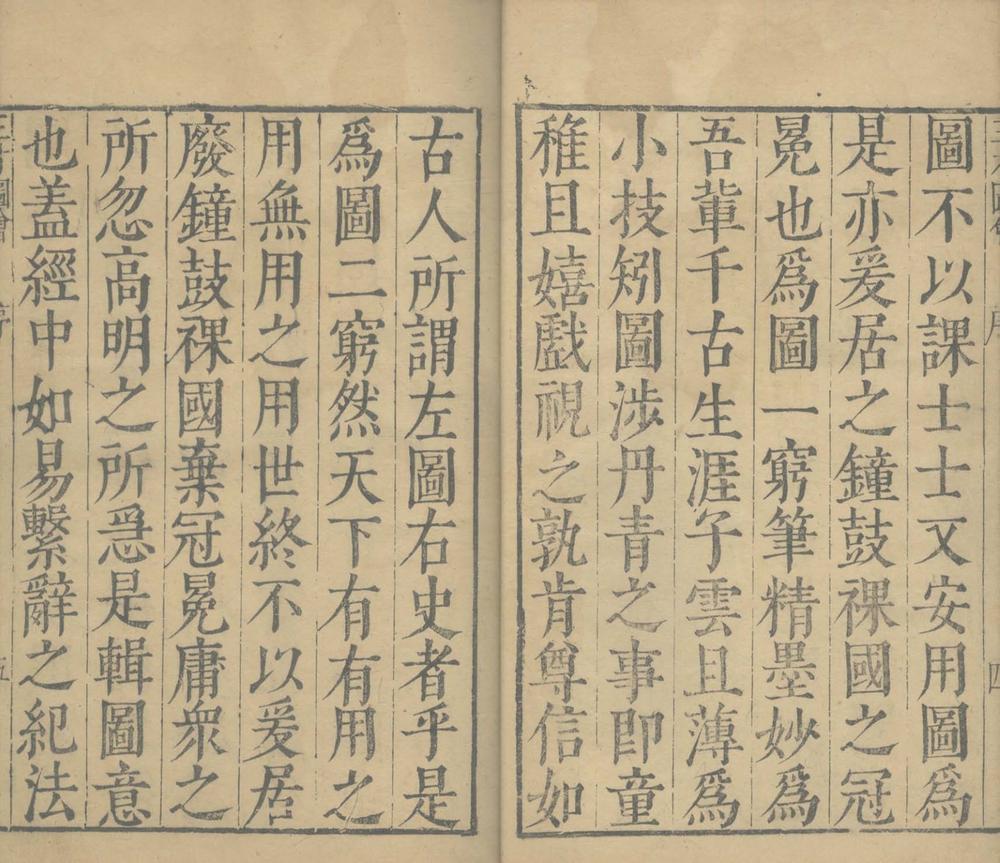 圖不以課士士又安用圖爲
是亦爰居之鐘鼓裸國之冠
冕也爲圖一窮筆精墨妙爲
吾輩千古生涯子雲且薄爲
小技矧圖涉丹青之事即童
稚且嬉戲視之孰肯尊信如
古人所謂左圖右史者乎是
爲圖二窮然天下有有用之
用無用之用世終不以爰居
廢鐘鼓裸國棄冠冕庸衆之
所忽高明之所急是輯圖意
也蓋經中如易繫辭之紀法
五
四